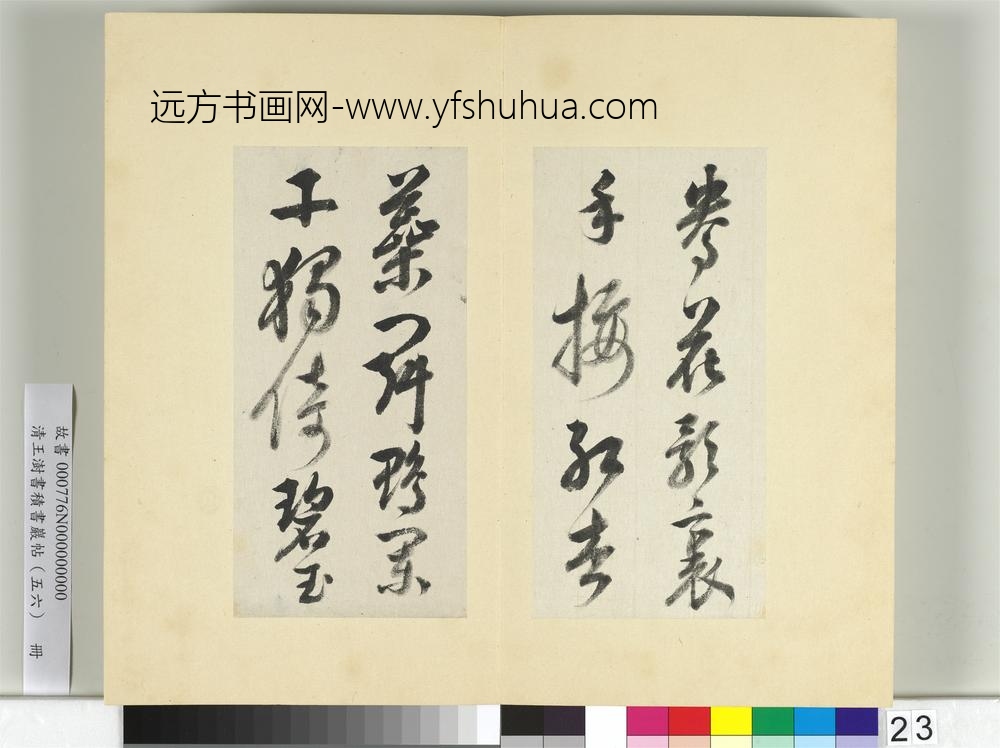 远方书画网-www.yfshuhua.com
鴦花影裏
手挼紅杏
蘂鬥鴨闌
干獨倚碧玉
故書 000776N000000000
清王澍書積書巖帖(五六) 冊
23